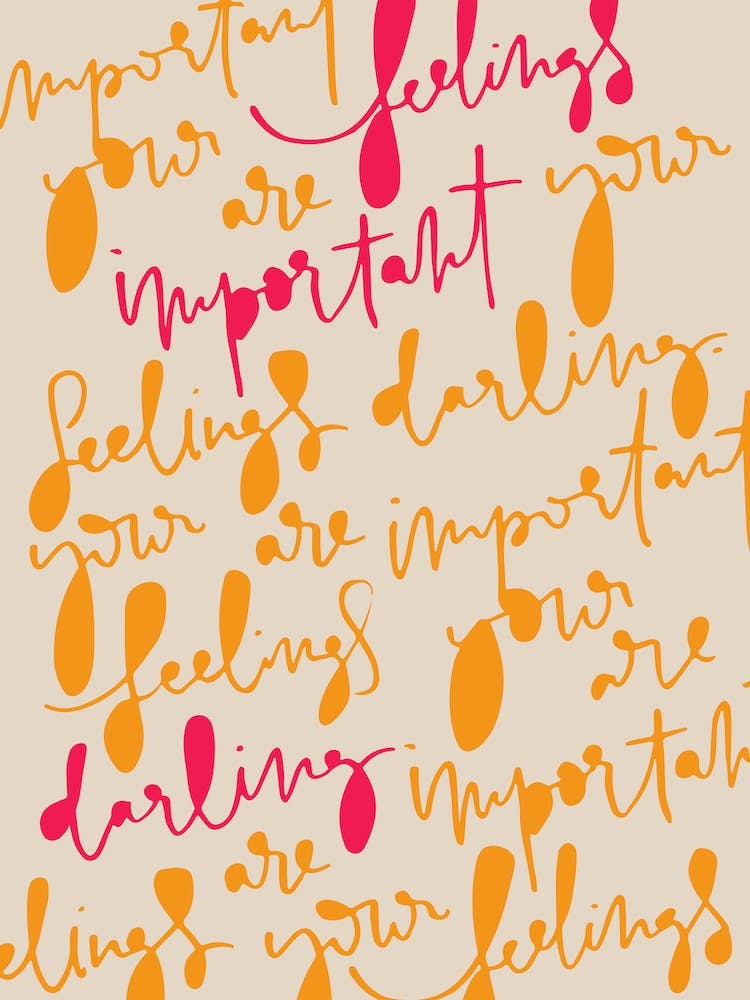 important feelings
your are your
important
feelings darling.
your are important
feelings your
are
darling important
are
feelings your feelings